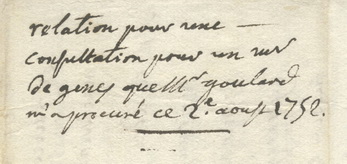 relation pour une
consultation pour un
de gens que Mr goulard
m'a procuré ce 2e aoust 1752.